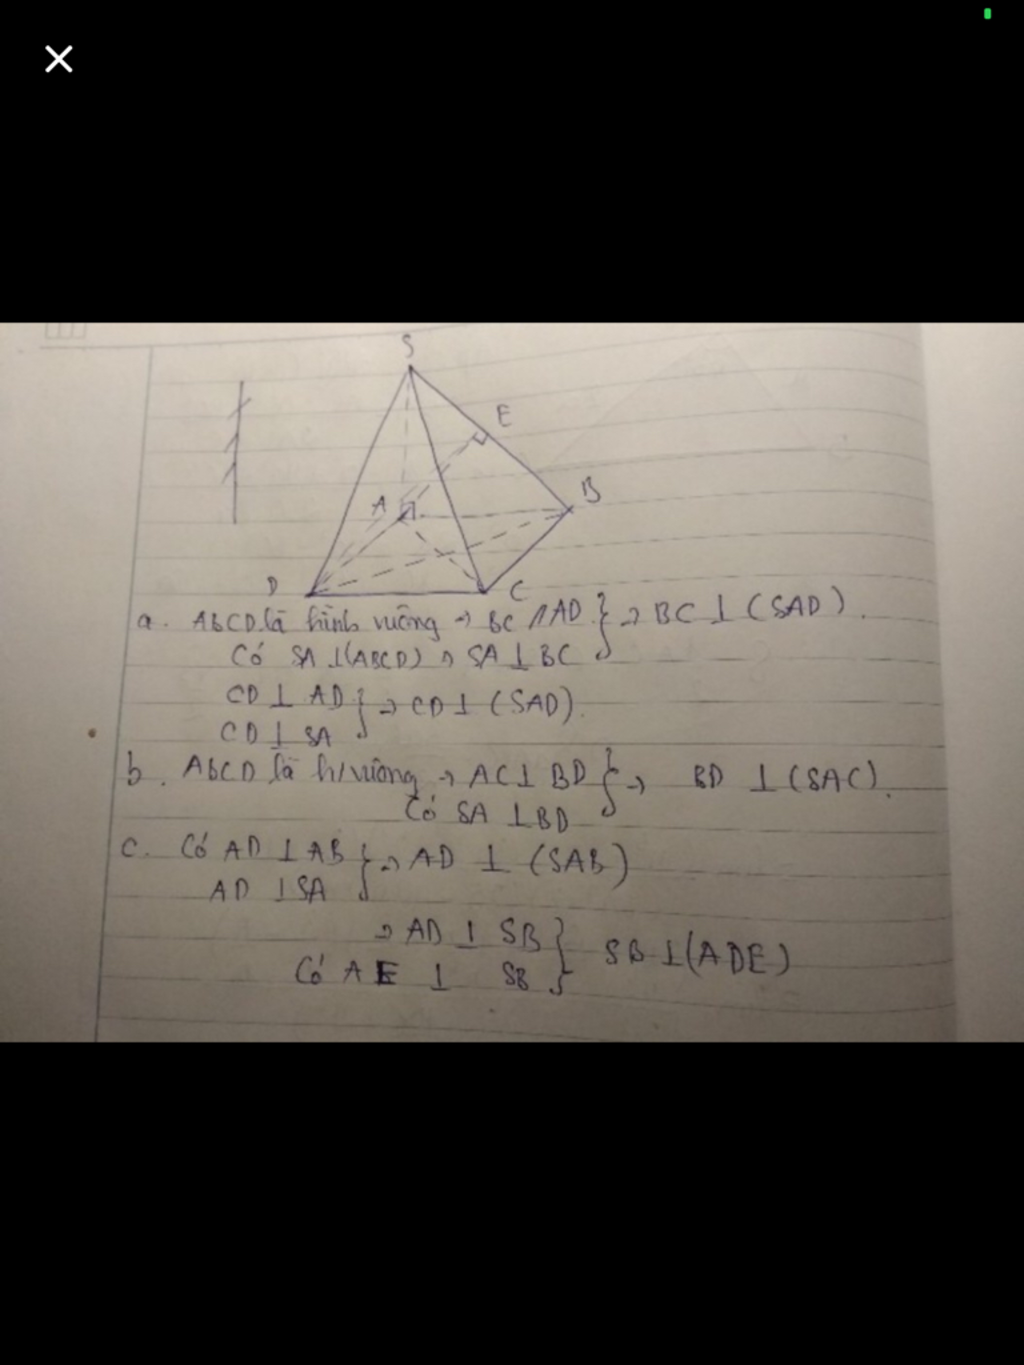 S
E
B
A
D
C
a. ABCD là hình vuông → BC // AD } → BC ⊥ (SAD).
Có SA ⊥ (ABCD) → SA ⊥ BC
CD ⊥ AD } → CD ⊥ (SAD).
CD ⊥ SA
b. ABCD là h/vuông → AC ⊥ BD } → BD ⊥ (SAC).
Có SA ⊥ BD
c. Có AD ⊥ AB } → AD ⊥ (SAB)
AD ⊥ SA
→ AD ⊥ SB } SB ⊥ (ADE)
Có AE ⊥ SB